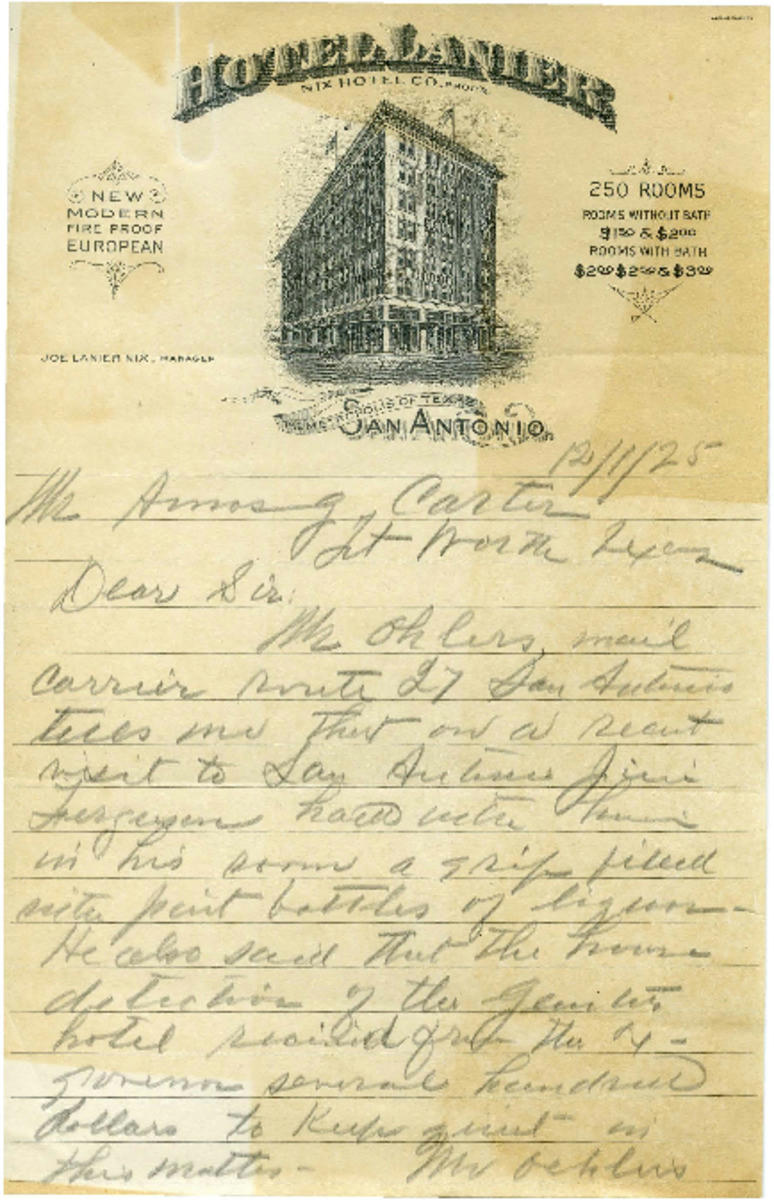 HOTEL LANIER
NIX HOTEL CO. PROP'S.
NEW
MODERN
FIRE PROOF
EUROPEAN
250 ROOMS
ROOMS WITHOUT BATH
$1.50 & $2.00
ROOMS WITH BATH
$2.00 $2.50 & $3.00
JOE LANIER NIX, MANAGER
THE METROPOLIS OF TEXAS
SAN ANTONIO,
12/1/25
Mr Amos G. Carter
Ft Worth Texas
Dear Sir:
Mr Ohlers, mail
carrier route 27 San Antonio
tells me that on a recent
visit to San Antonio Jim
Ferguson had with him
in his room a grip filled
with pint bottles of liquor-
He also said that the house
detective of the Gunter
hotel received from the X-
governor several hundred
dollars to keep quiet in
this matter- Mr Oehlers